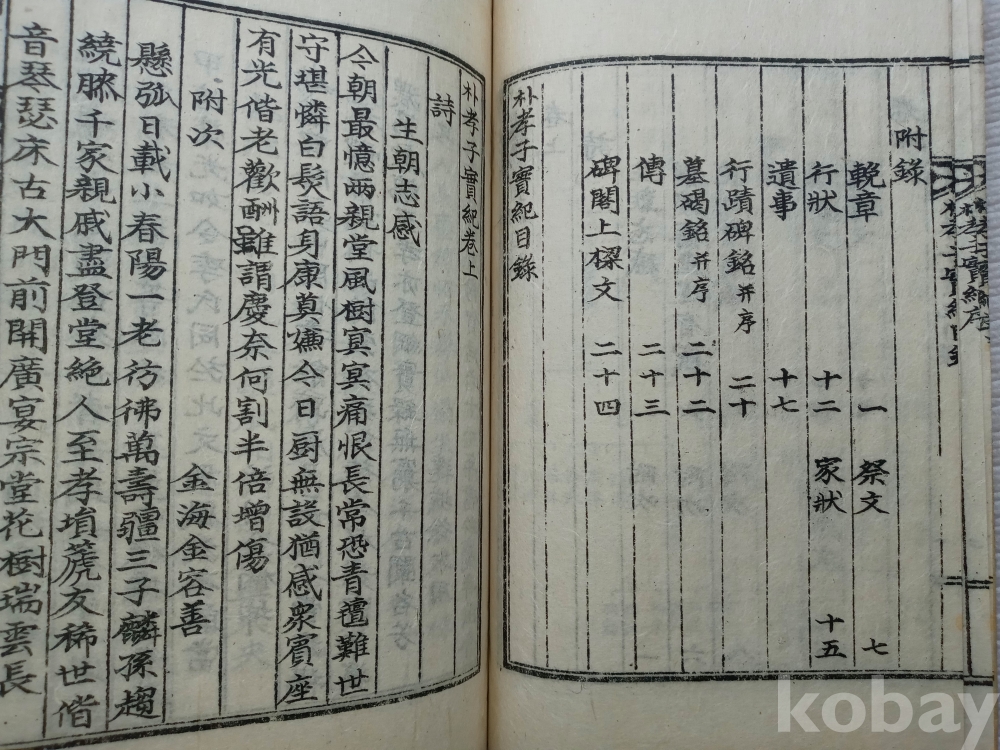 附錄
輓章 一 祭文 七
行狀 十二 家狀 十五
遺事 十七
行蹟碑銘并序 二十
墓碣銘并序 二十二
傳 二十三
碑閣上樑文 二十四
朴孝子實紀目錄
朴孝子實紀卷上
詩
生朝志感
今朝最憶兩親堂風樹冥冥痛恨長常恐青氊難世
守堪憐白髮語身康奠嫌今日厨無設猶感衆賓座
有光偕老歡酬雖謂慶奈何割半倍增傷
附次 金海金容善
懸弧日載小春陽一老彷彿萬壽疆三子麟孫趨
繞膝千家親戚盡登堂絶人至孝塤篪友稀世偕
音琴瑟床古大門前開廣宴宗堂花樹瑞雲長
kobay